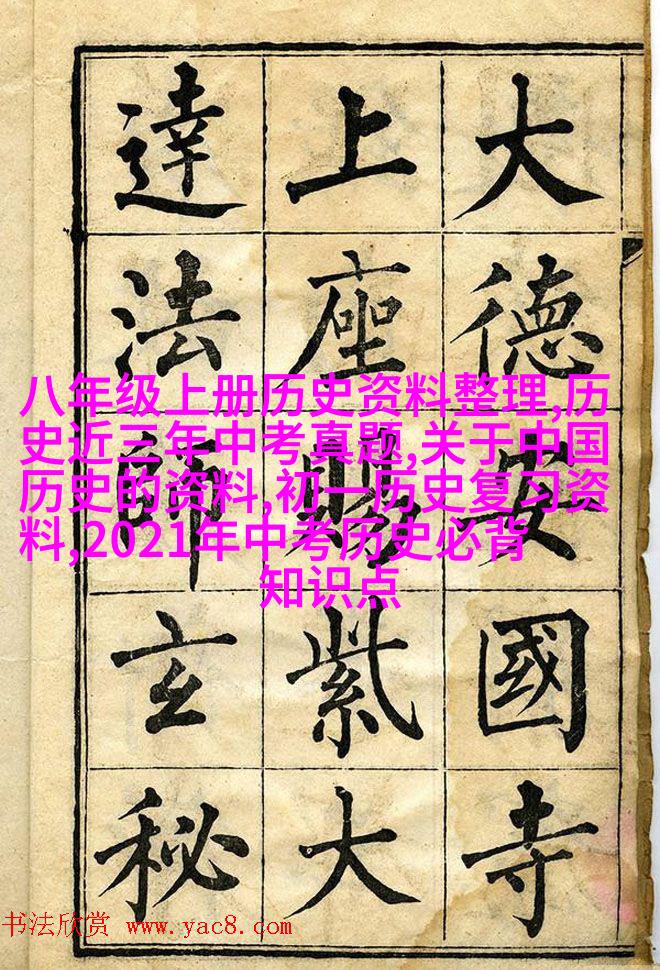 大德安國寺
上座賜紫大
達法師玄秘
八年级上册历史资料整理,历
史近三年中考真题,关于中国
历史的资料,初一历史复习资
料,2021年中考历史必背
知识点
书法欣赏 www.yac8.com